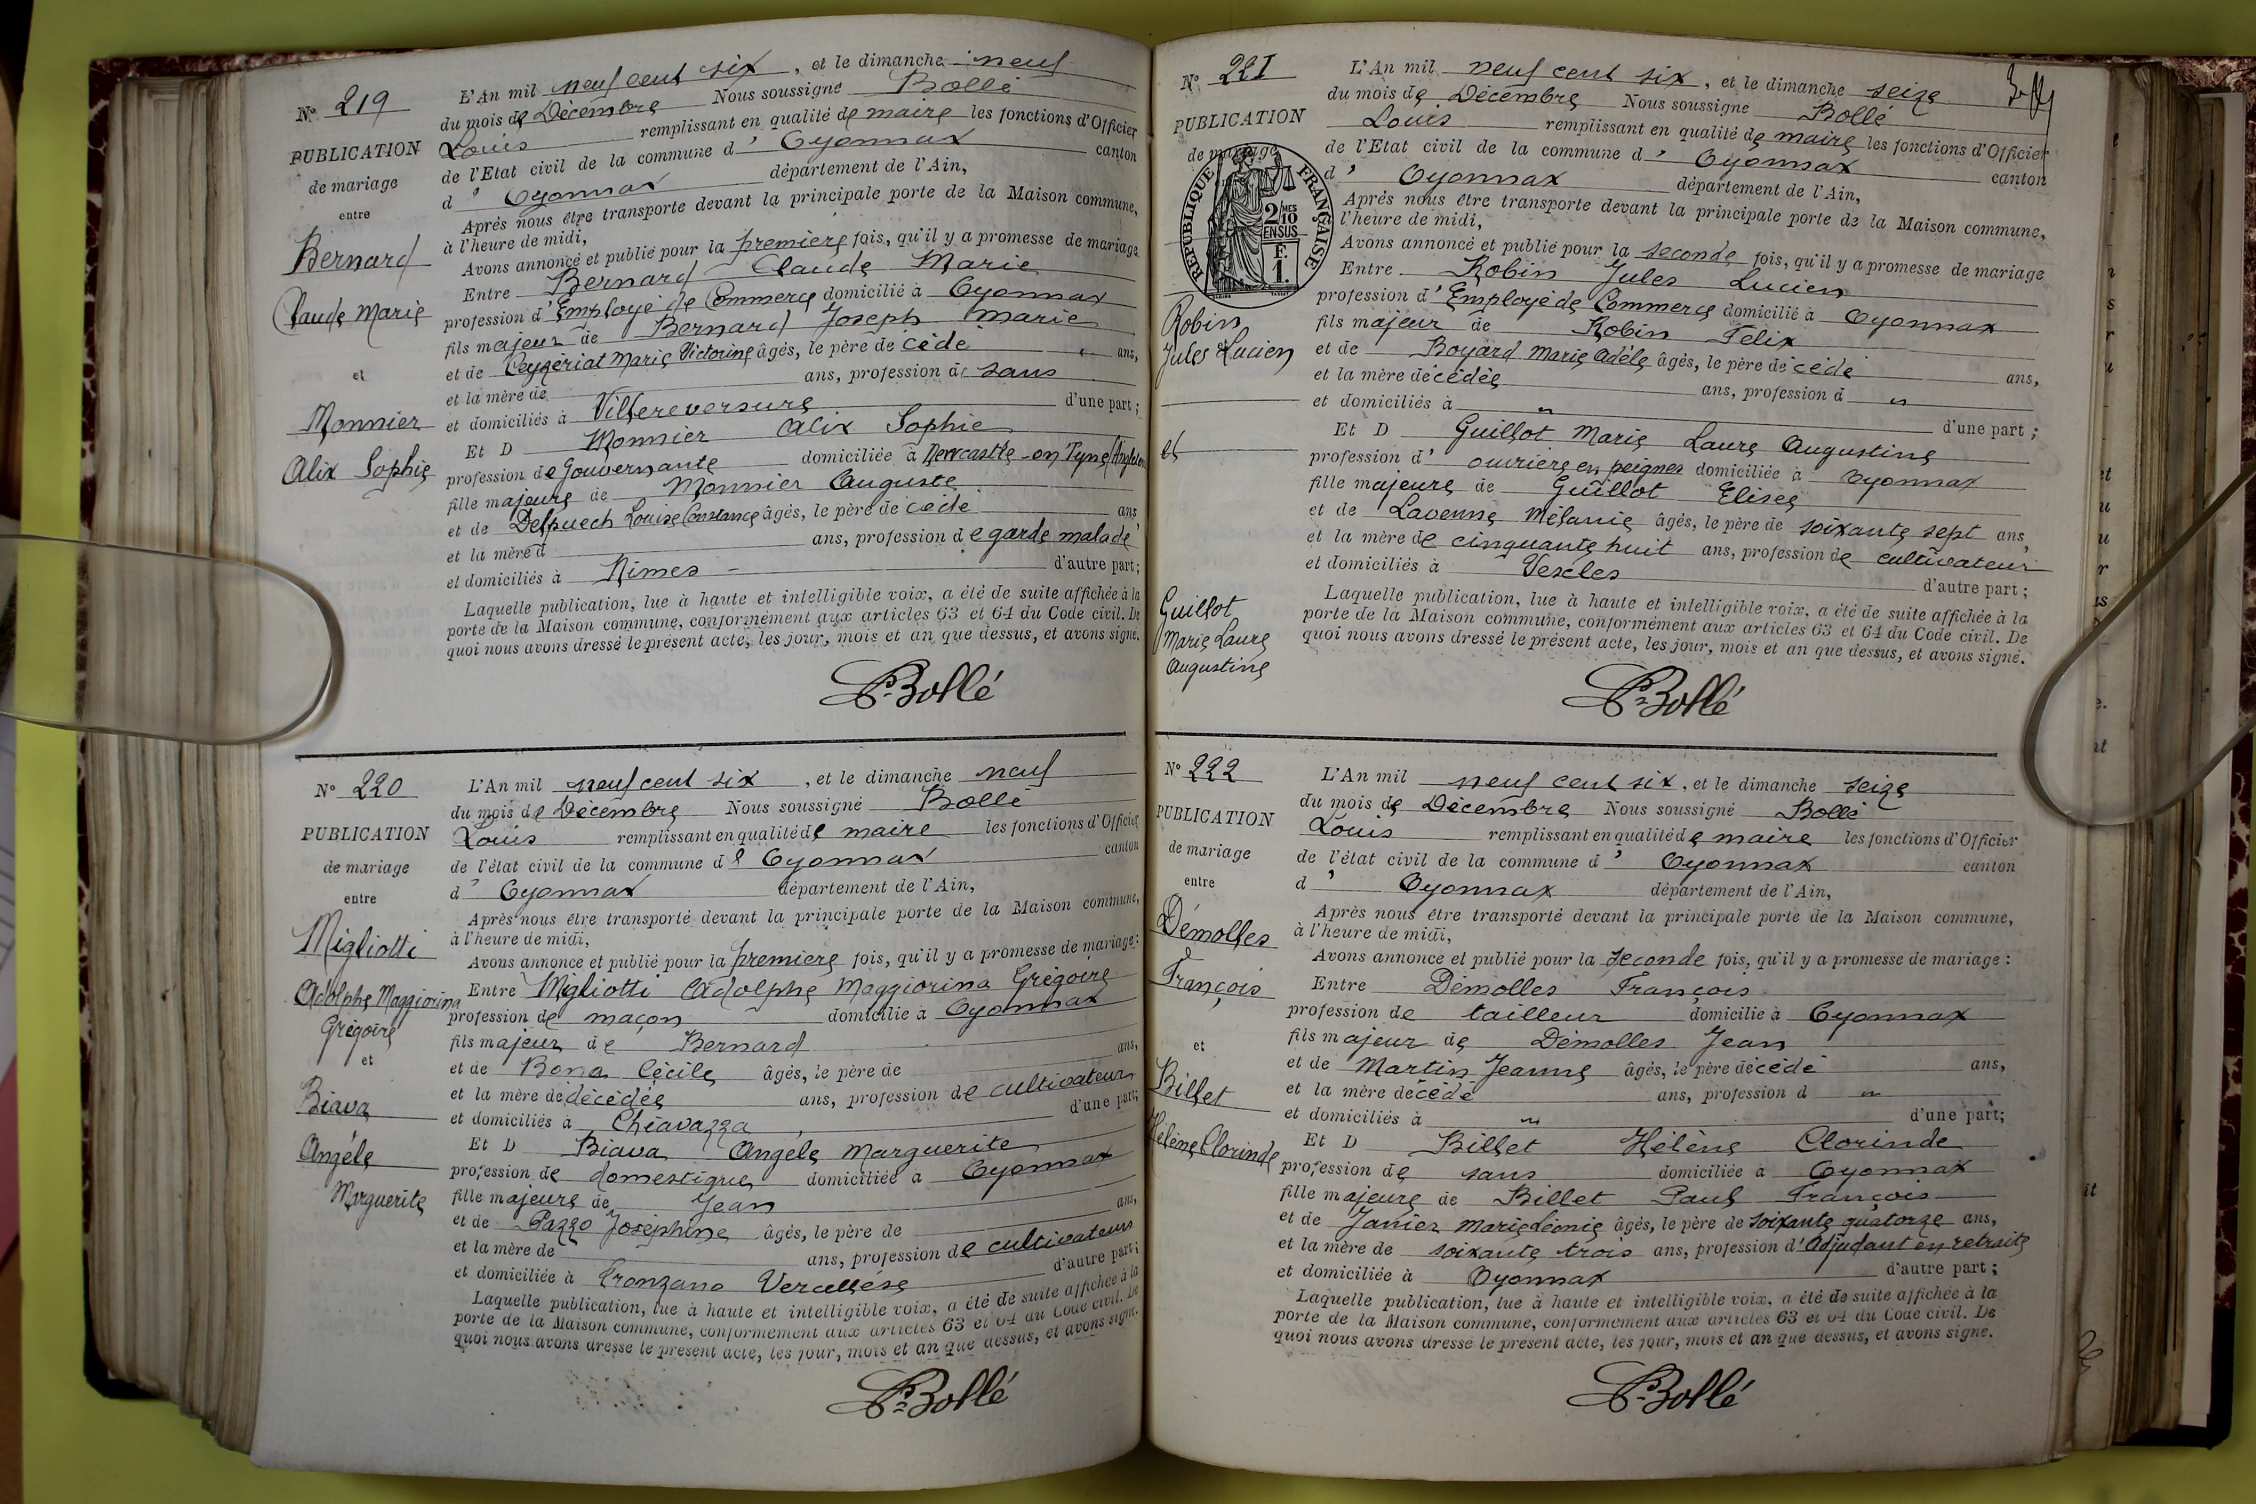 N° 219
PUBLICATION
de mariage
entre
Bernard
Claude Marie
et
Monnier
Alix Sophie
L'An mil neuf cent six, et le dimanche neuf
du mois de Décembre Nous soussigné Bollé
Louis remplissant en qualité de maire les fonctions d'Officier
de l'Etat civil de la commune d' Oyonnax canton
d' Oyonnax département de l'Ain,
Après nous être transporté devant la principale porte de la Maison commune,
à l'heure de midi,
Avons annoncé et publié pour la première fois, qu'il y a promesse de mariage
Entre Bernard Claude Marie
profession d' Employé de Commerce domicilié à Oyonnax
fils majeur de Bernard Joseph Marie
et de Ceyzériat Marie Victorine âgés, le père décédé " ans,
et la mère de ans, profession de sans
et domiciliés à Villereversure d'une part ;
Et D Monnier Alix Sophie
profession de Gouvernante domiciliée à Newcastle-on Tyne
fille majeure de Monnier Auguste
et de Delpuech Louise Constance âgés, le père décédé ans
et la mère d ans, profession de garde malade
et domiciliés à Nimes d'autre part;
Laquelle publication, lue à haute et intelligible voix, a été de suite affichée à la
porte de la Maison commune, conformément aux articles 63 et 64 du Code civil. De
quoi nous avons dressé le présent acte, les jour, mois et an que dessus, et avons signé.
Bollé
N° 220
PUBLICATION
de mariage
entre
Migliotti
Adolphe Maggiorina
Grégoire
et
Biava
Angéle
Marguerite
L'An mil neuf cent six, et le dimanche neuf
du mois de Décembre Nous soussigné Bollé
Louis remplissant en qualité de maire les fonctions d'Officier
de l'état civil de la commune d' Oyonnax canton
d' Oyonnax département de l'Ain,
Après nous être transporté devant la principale porte de la Maison commune,
à l'heure de midi,
Avons annoncé et publié pour la première fois, qu'il y a promesse de mariage:
Entre Migliotti Adolphe Maggiorina Grégoire
profession de maçon domicilié à Oyonnax
fils majeur de Bernard
et de Bona Cécile âgés, le père de ans,
et la mère de décédée ans, profession de cultivateur
et domiciliés à Chiavazza d'une part;
Et D Biava Angéle Marguerite
profession de domestique domiciliée à Oyonnax
fille majeure de Jean
et de Pazzo Joséphine âgés, le père de ans,
et la mère de ans, profession de cultivateurs
et domiciliée à Tronzano Vercellése d'autre part;
Laquelle publication, lue à haute et intelligible voix, a été de suite affichée à la
porte de la Maison commune, conformément aux articles 63 et 64 du Code civil. De
quoi nous avons dressé le présent acte, les jour, mois et an que dessus, et avons signé.
Bollé
N° 221
PUBLICATION
de mariage
RÉPUBLIQUE FRANÇAISE
2/10 MES
EN SUS
F.
1.
Robin
Jules Lucien
et
Guillot
Marie Laure
Augustine
L'An mil neuf cent six, et le dimanche seize
du mois de Décembre Nous soussigné Bollé
Louis remplissant en qualité de maire les fonctions d'Officier
de l'Etat civil de la commune d' Oyonnax canton
d' Oyonnax département de l'Ain,
Après nous être transporté devant la principale porte de la Maison commune,
l'heure de midi,
Avons annoncé et publié pour la seconde fois, qu'il y a promesse de mariage
Entre Robin Jules Lucien
profession d' Employé de Commerce domicilié à Oyonnax
fils majeur de Robin Felix
et de Boyard Marie Adéle âgés, le père décédé ans,
et la mère décédée ans, profession d "
et domiciliés à " d'une part ;
Et D Guillot Marie Laure Augustine
profession d' ouvrière en peignes domiciliée à Oyonnax
fille majeure de Guillot Elisée
et de Lavenne Mélanie âgés, le père de soixante sept ans,
et la mère de cinquante huit ans, profession de cultivateur
et domiciliés à Vescles d'autre part ;
Laquelle publication, lue à haute et intelligible voix, a été de suite affichée à la
porte de la Maison commune, conformément aux articles 63 et 64 du Code civil. De
quoi nous avons dressé le présent acte, les jour, mois et an que dessus, et avons signé.
Bollé
N° 222
PUBLICATION
de mariage
entre
Démolles
François
et
Billet
Hélène Clorinde
L'An mil neuf cent six, et le dimanche seize
du mois de Décembre Nous soussigné Bollé
Louis remplissant en qualité de maire les fonctions d'Officier
de l'état civil de la commune d' Oyonnax canton
d' Oyonnax département de l'Ain,
Après nous être transporté devant la principale porte de la Maison commune,
à l'heure de midi,
Avons annoncé et publié pour la seconde fois, qu'il y a promesse de mariage :
Entre Démolles François
profession de tailleur domicilié à Oyonnax
fils majeur de Démolles Jean
et de Martin Jeanne âgés, le père décédé ans,
et la mère décédé ans, profession d "
et domiciliés à " d'une part;
Et D Billet Hélène Clorinde
profession de sans domiciliée à Oyonnax
fille majeure de Billet Paul François
et de Janier Marie Léonie âgés, le père de soixante quatorze ans,
et la mère de soixante trois ans, profession d' Adjudant en retraite
et domiciliée à Oyonnax d'autre part ;
Laquelle publication, lue à haute et intelligible voix, a été de suite affichée à la
porte de la Maison commune, conformément aux articles 63 et 64 du Code civil. De
quoi nous avons dressé le présent acte, les jour, mois et an que dessus, et avons signé.
Bollé